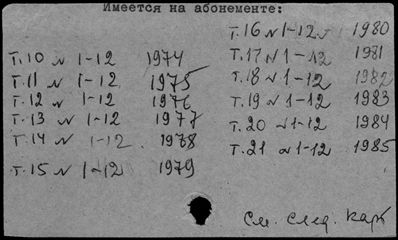 Имеется на абонементе:
Т.10 N 1-12 1974
Т.11 N 1-12 1975
Т.12 N 1-12 1976
Т.13 N 1-12 1977
Т.14 N 1-12. 1978
Т.15 N 1-12 1979
Т.16 N 1-12 1980
Т.17 N 1-12 1981
Т.18 N 1-12 1982
Т.19 N 1-12 1983
Т.20 N 1-12 1984
Т.21 N 1-12 1985
См. след. карт